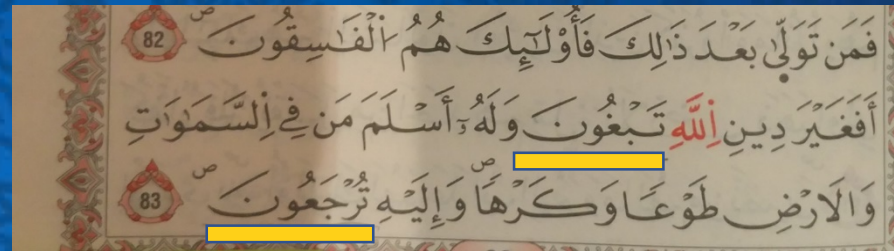 فَمَن تَوَلّ۪ىٰ بَعْدَ ذَٰلِكَ فَأُوْلَٰٓئِكَ هُمُ اُ۬لْفَٰسِقُونَ ص 82
أَفَغَيْرَ دِينِ اِ۬للَّهِ تَبْغُونَ وَلَهُۥٓ أَسْلَمَ مَن فِے اِ۬لسَّمَٰوَٰتِ
وَالَارْضِ طَوْعاٗ وَكَرْهاٗ ص وَإِلَيْهِ تُرْجَعُونَ ص 83